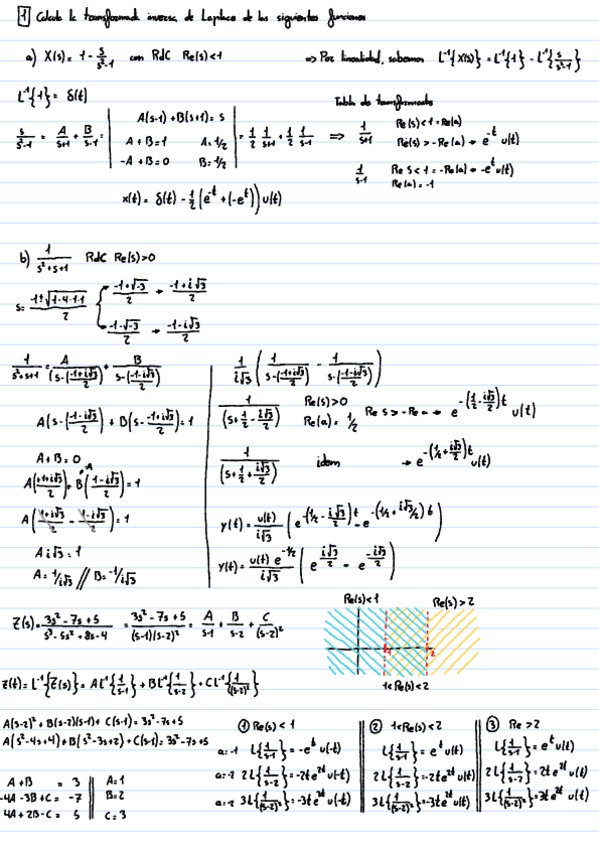 1 Calcule la transformada inversa de Laplace de las siguientes funciones
a) X(s) = 1 - s/(s²-1) con RdC Re(s)<1 => Por linealidad, sabemos L⁻¹{X(s)} = L⁻¹{1} - L⁻¹{s/(s²-1)}
L⁻¹{1} = δ(t)
Tabla de transformadas
s/(s²-1) = A/(s+1) + B/(s-1) =
A(s-1) + B(s+1) = s
A + B = 1 A = 1/2
-A + B = 0 B = 1/2
= 1/2 1/(s+1) + 1/2 1/(s-1) =>
1/(s+1) Re(s)<1 = Re(a)
Re(s) > -Re(a) → e^-t u(t)
1/(s-1) Re s < 1 = -Re(a) → -e^t u(t)
Re(a) = -1
x(t) = δ(t) - 1/2 (e^-t + (-e^t)) u(t)
b) 1/(s²+s+1) RdC Re(s)>0
s = (-1±√(1-4·1·1))/2
(-1+√-3)/2 → (-1+i√3)/2
(-1-√-3)/2 → (-1-i√3)/2
1/(s²+s+1) = A/(s-(-1+i√3)/2) + B/(s-(-1-i√3)/2)
A(s-(-1-i√3)/2) + B(s-(-1+i√3)/2) = 1
A + B = 0
A((1+i√3)/2) + B((1-i√3)/2) = 1
-A
A((1+i√3)/2 - (1-i√3)/2) = 1
A i√3 = 1
A = 1/i√3 // B = -1/i√3
1/i√3 (1/(s-(-1+i√3)/2) - 1/(s-(-1-i√3)/2))
1/(s+1/2-i√3/2) Re(s)>0
Re(a) = 1/2 Re s > -Re a → e^-(1/2-i√3/2)t u(t)
1/(s+1/2+i√3/2) idem → e^-(1/2+i√3/2)t u(t)
y(t) = u(t)/i√3 (e^-(1/2-i√3/2)t - e^-(1/2+i√3/2)t)
y(t) = u(t) e^-1/2/i√3 (e^i√3/2 - e^-i√3/2)
Z(s) = (3s²-7s+5)/(s³-5s²+8s-4) = (3s²-7s+5)/((s-1)(s-2)²) = A/(s-1) + B/(s-2) + C/(s-2)²
Re(s)<1 Re(s)>2
1 2
1<Re(s)<2
z(t) = L⁻¹{Z(s)} = A L⁻¹{1/(s-1)} + B L⁻¹{1/(s-2)} + C L⁻¹{1/(s-2)²}
A(s-2)² + B(s-2)(s-1) + C(s-1) = 3s²-7s+5
A(s²-4s+4) + B(s²-3s+2) + C(s-1) = 3s²-7s+5
A + B = 3 A = 1
-4A - 3B + C = -7 B = 2
4A + 2B - C = 5 C = 3
① Re(s) < 1
a = -1 L{1/(s-1)} = -e^t u(-t)
a = -2 2L{1/(s-2)} = -2te^2t u(-t)
a = -2 3L{1/(s-2)²} = -3te^2t u(-t)
② 1<Re(s)<2
L{1/(s-1)} = e^t u(t)
2L{1/(s-2)} = -2te^2t u(t)
3L{1/(s-2)²} = -3te^2t u(t)
③ Re > 2
L{1/(s-1)} = e^t u(t)
2L{1/(s-2)} = 2te^2t u(t)
3L{1/(s-2)²} = 3te^2t u(t)